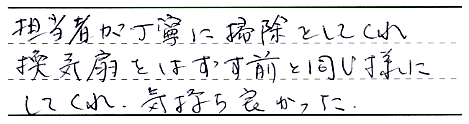 担当者が丁寧に掃除をしてくれ
換気扇をはずす前と同じ様に
してくれ、気持ち良かった.